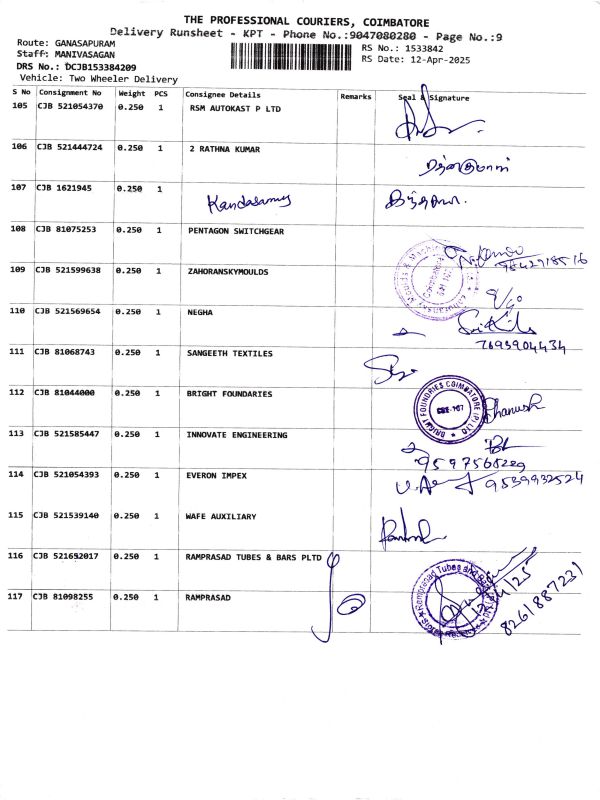 THE PROFESSIONAL COURIERS, COIMBATORE
Delivery Runsheet - KPT - Phone No.:9047080280 - Page No.:9
Route: GANASAPURAM
RS No.: 1533842
Staff: MANIVASAGAN
RS Date: 12-Apr-2025
DRS No.: DCJB153384209
Vehicle: Two Wheeler Delivery
S No Consignment No Weight PCS Consignee Details Remarks Seal & Signature
105 CJB 521054370 0.250 1 RSM AUTOKAST P LTD
106 CJB 521444724 0.250 1 2 RATHNA KUMAR
ரத்னகுமார்
107 CJB 1621945 0.250 1
Kandasamy
108 CJB 81075253 0.250 1 PENTAGON SWITCHGEAR
109 CJB 521599638 0.250 1 ZAHORANSKYMOULDS
110 CJB 521569654 0.250 1 NEGHA
7695904434
111 CJB 81068743 0.250 1 SANGEETH TEXTILES
112 CJB 81044000 0.250 1 BRIGHT FOUNDARIES
BRIGHT FOUNDRIES COIMBATORE (P) LTD
Dhanush
113 CJB 521585447 0.250 1 INNOVATE ENGINEERING
114 CJB 521054393 0.250 1 EVERON IMPEX
9539932524
115 CJB 521539140 0.250 1 WAFE AUXILIARY
116 CJB 521652017 0.250 1 RAMPRASAD TUBES & BARS PLTD
117 CJB 81098255 0.250 1 RAMPRASAD
8261887231